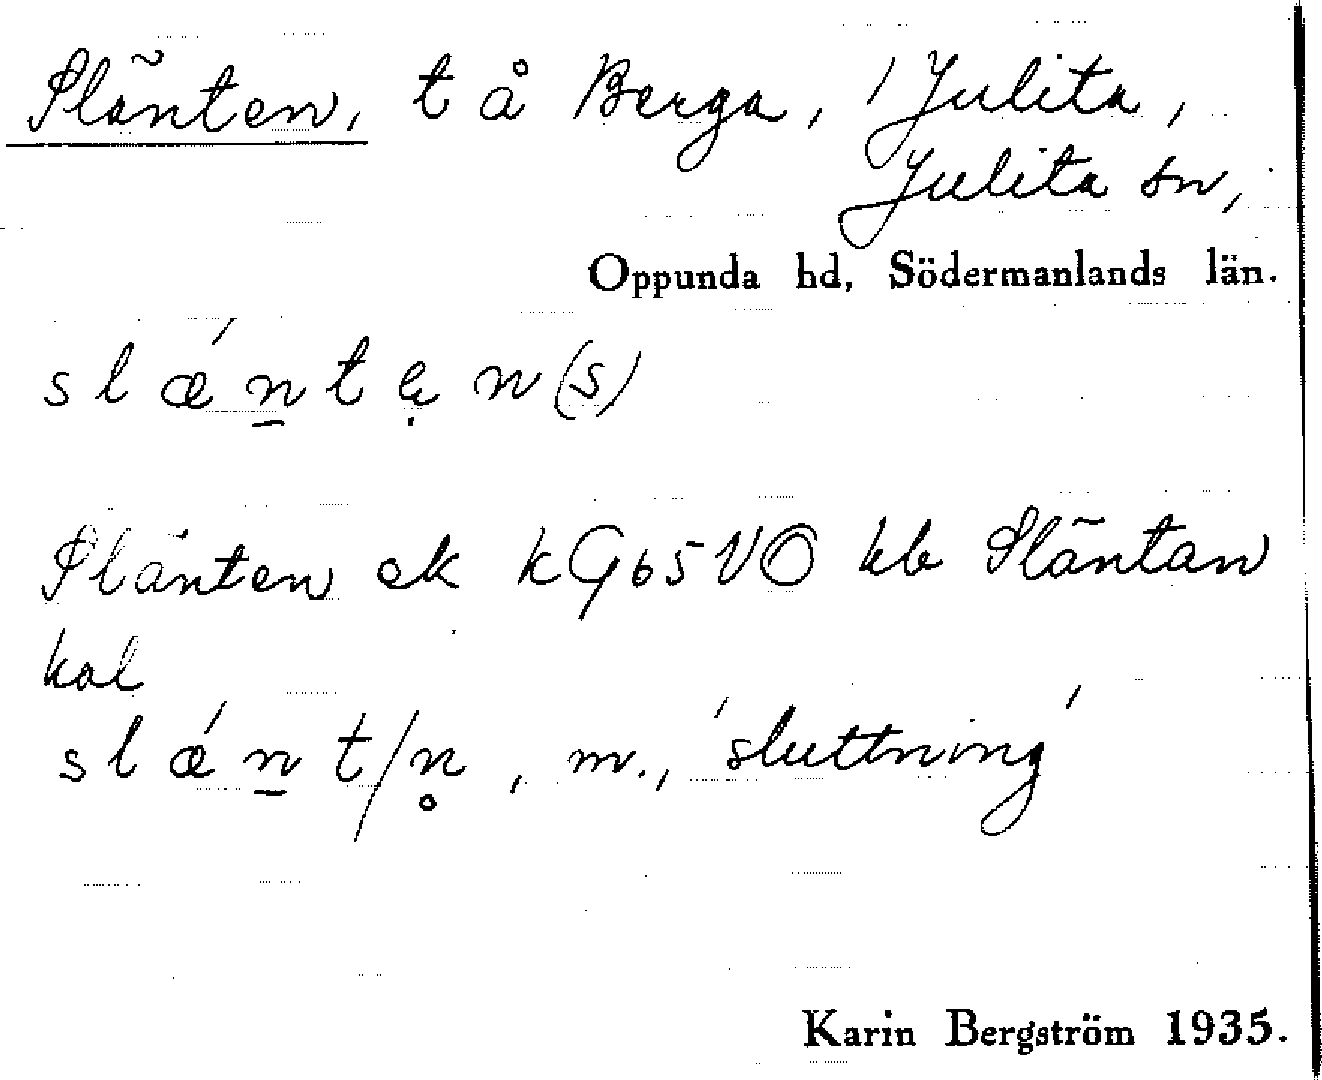 Slänten, t å Berga, Julita,
Julita sn,
Oppunda hd, Södermanlands län.
s l ǽ n̲ t ẹ n (s)
Slänten ek kG65VO hb Släntan
kal
s l ǽ n̲ t/n̥, m., 'sluttning'
Karin Bergström 1935.